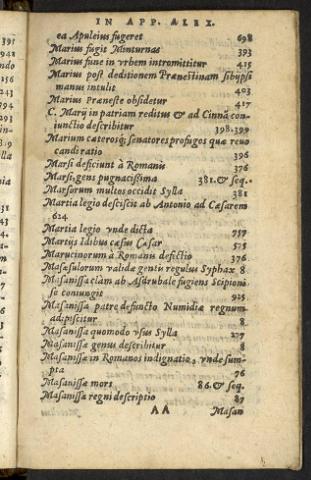 IN APP. ALEX.
ea Apuleius fugeret 698
Marius fugit Minturnas 393
Marius fune in vrbem intromittitur 415
Marius post deditionem Prænestinam sibypsi
manus intulit 403
Marius Præneste obsidetur 417
C. Marij in patriam reditus & ad Cinnā con
iunctio describitur 398.399
Marium cæterosq; senatores profugos qua reuo
candi ratio 396
Marsi deficiunt à Romanis 376
Marsi, gens pugnacissima 381. & seq.
Marsorum multos occidit Sylla 381
Martia legio desciscit ab Antonio ad Cæsarem
624
Martia legio vnde dicta 757
Martijs Idibus cæsus Cæsar 575
Marucinorum à Romanis defectio 376
Masæsulorum validæ gentis regulus Syphax 8
Masanissa clam ab Asdrubale fugiens Scipioni
se coniungit 925
Masanissa patre defuncto Numidiæ regnum
adipiscitur 8
Masanissa quomodo vsus Sylla 277
Masanissæ genus describitur 8
Masanissæ in Romanos indignatio, vnde sum-
pta 76
Masanissæ mors 86. & seq.
Masanissæ regni descriptio 87
AA Masan
391
941
ndo
156
243
394
293